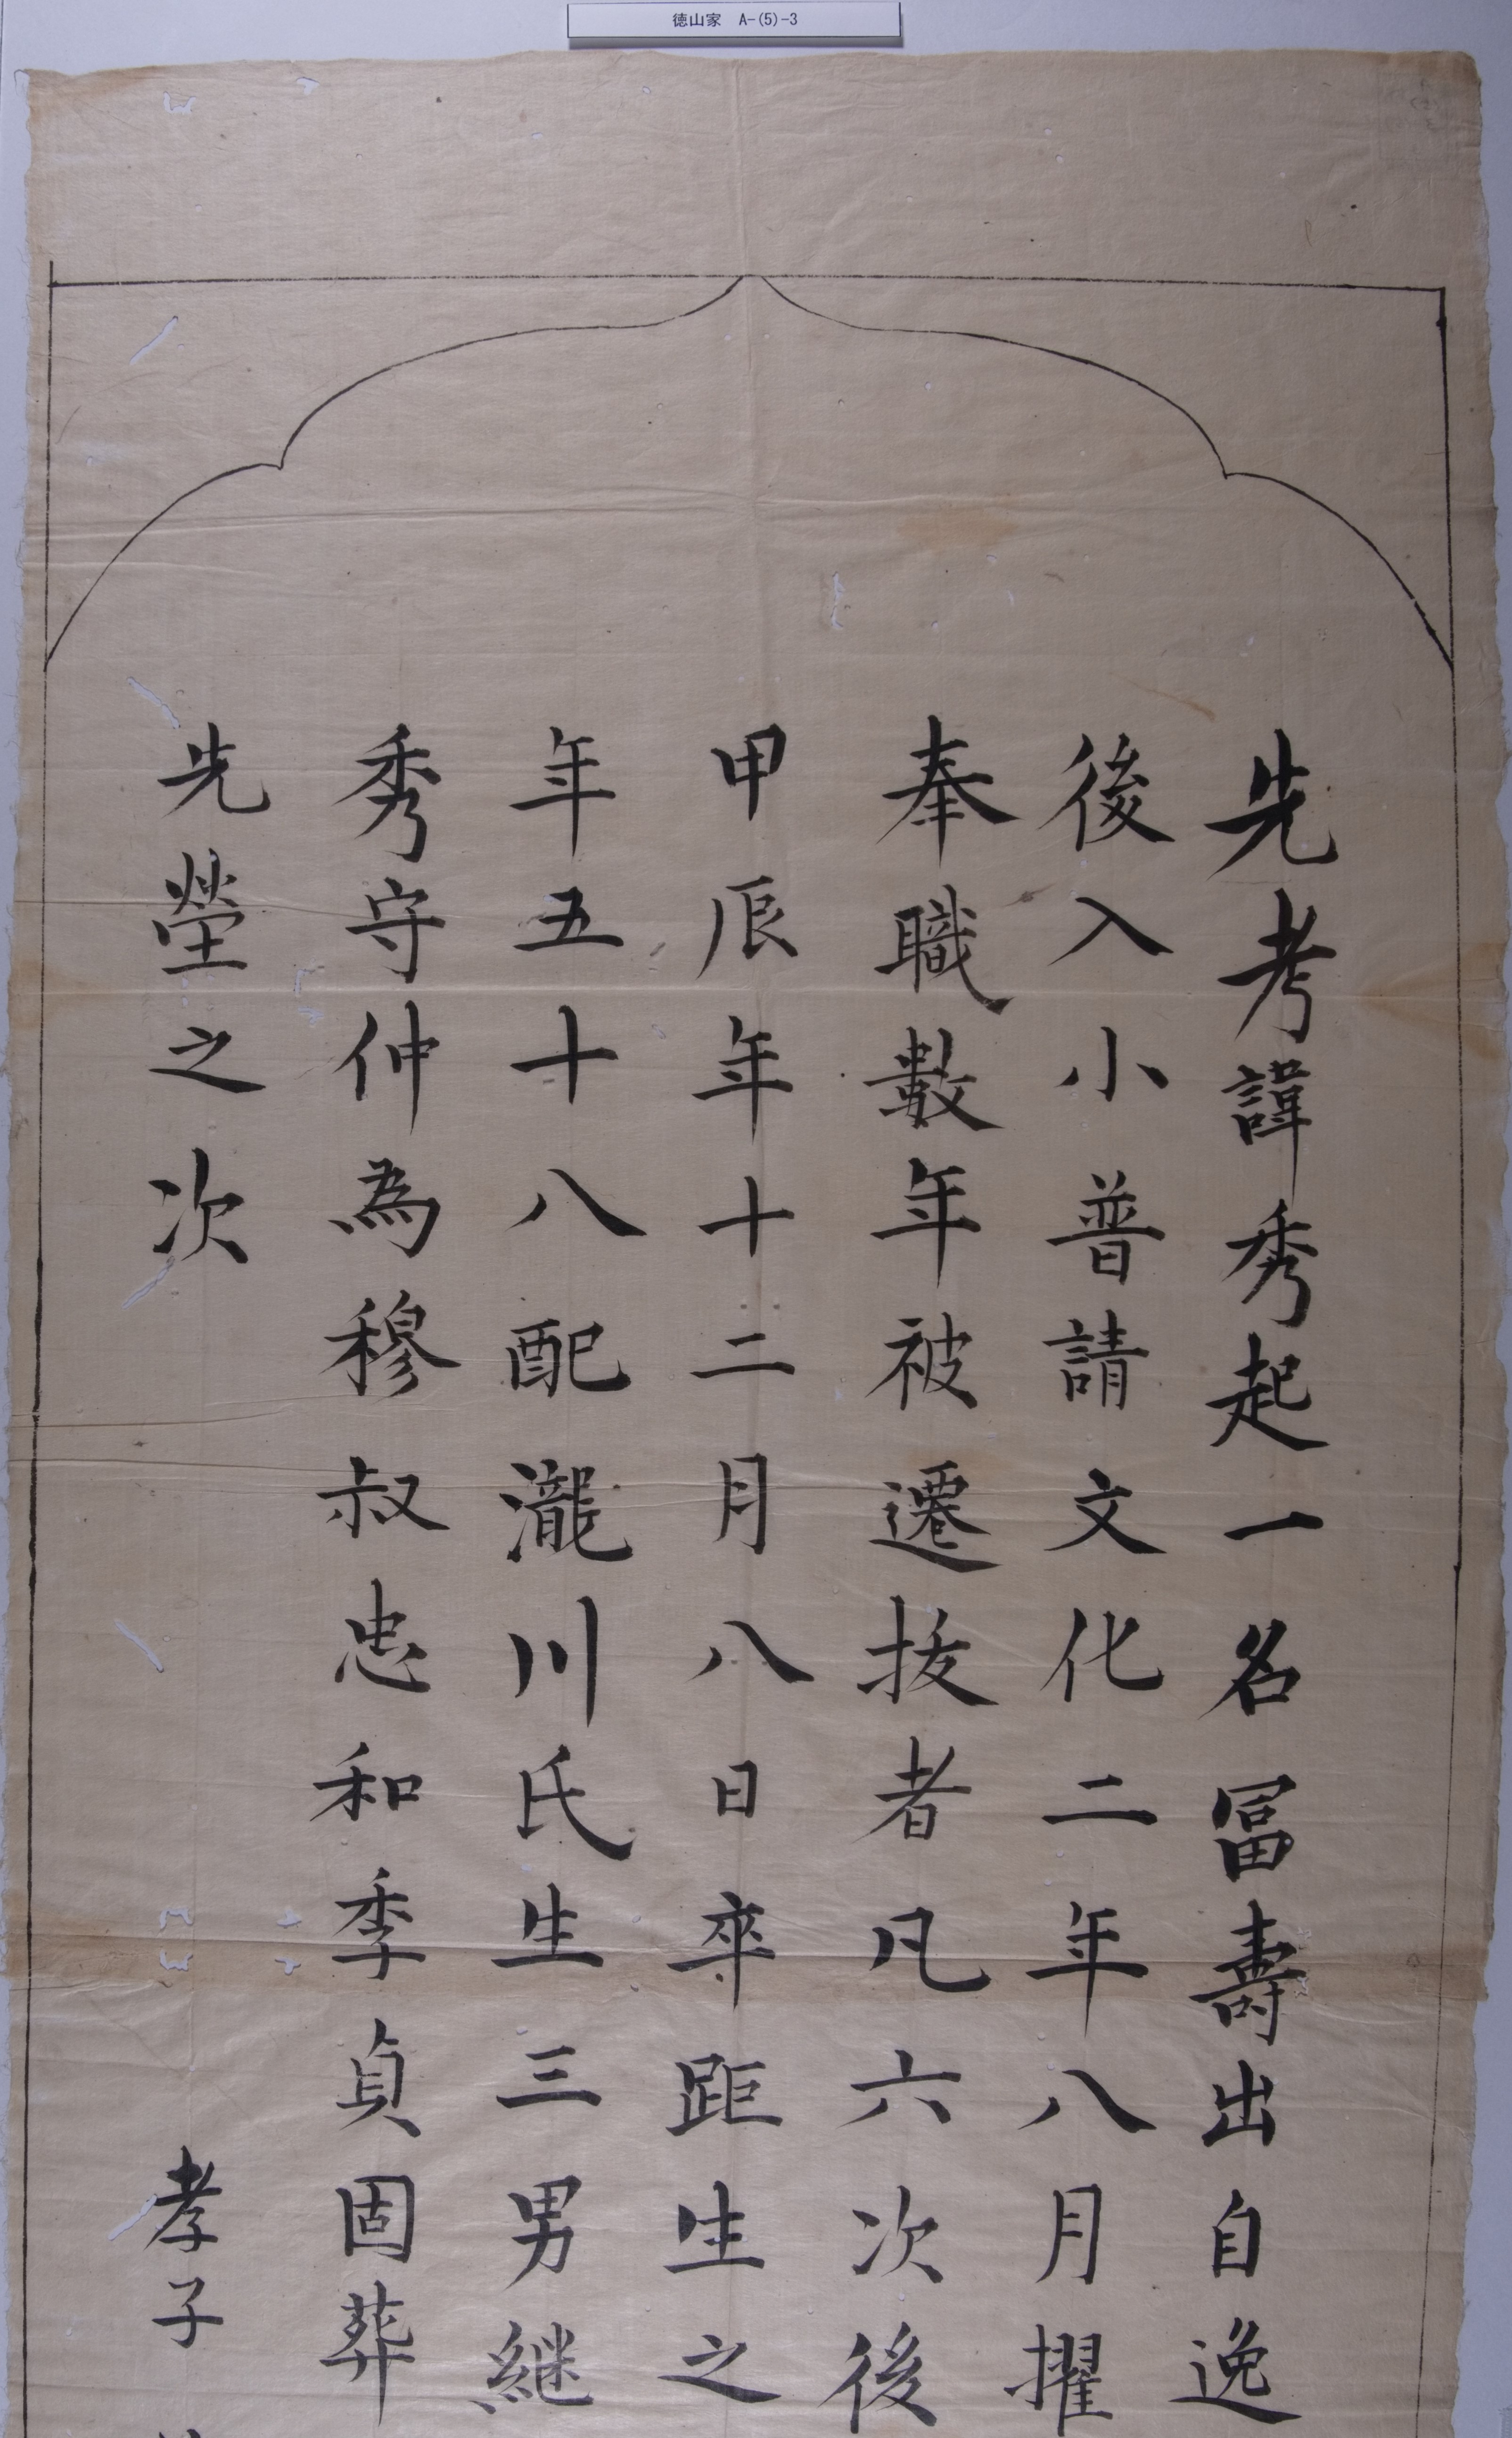 徳山家 A-(5)-3
先考諱秀起一名冨壽出自逸
後入小普請文化二年八月擢
奉職數年被遷抜者凡六次後
甲辰年十二月八日卒距生之
年五十八配瀧川氏生三男継
秀守仲為穆叔忠和季貞固葬
先塋之次 孝子